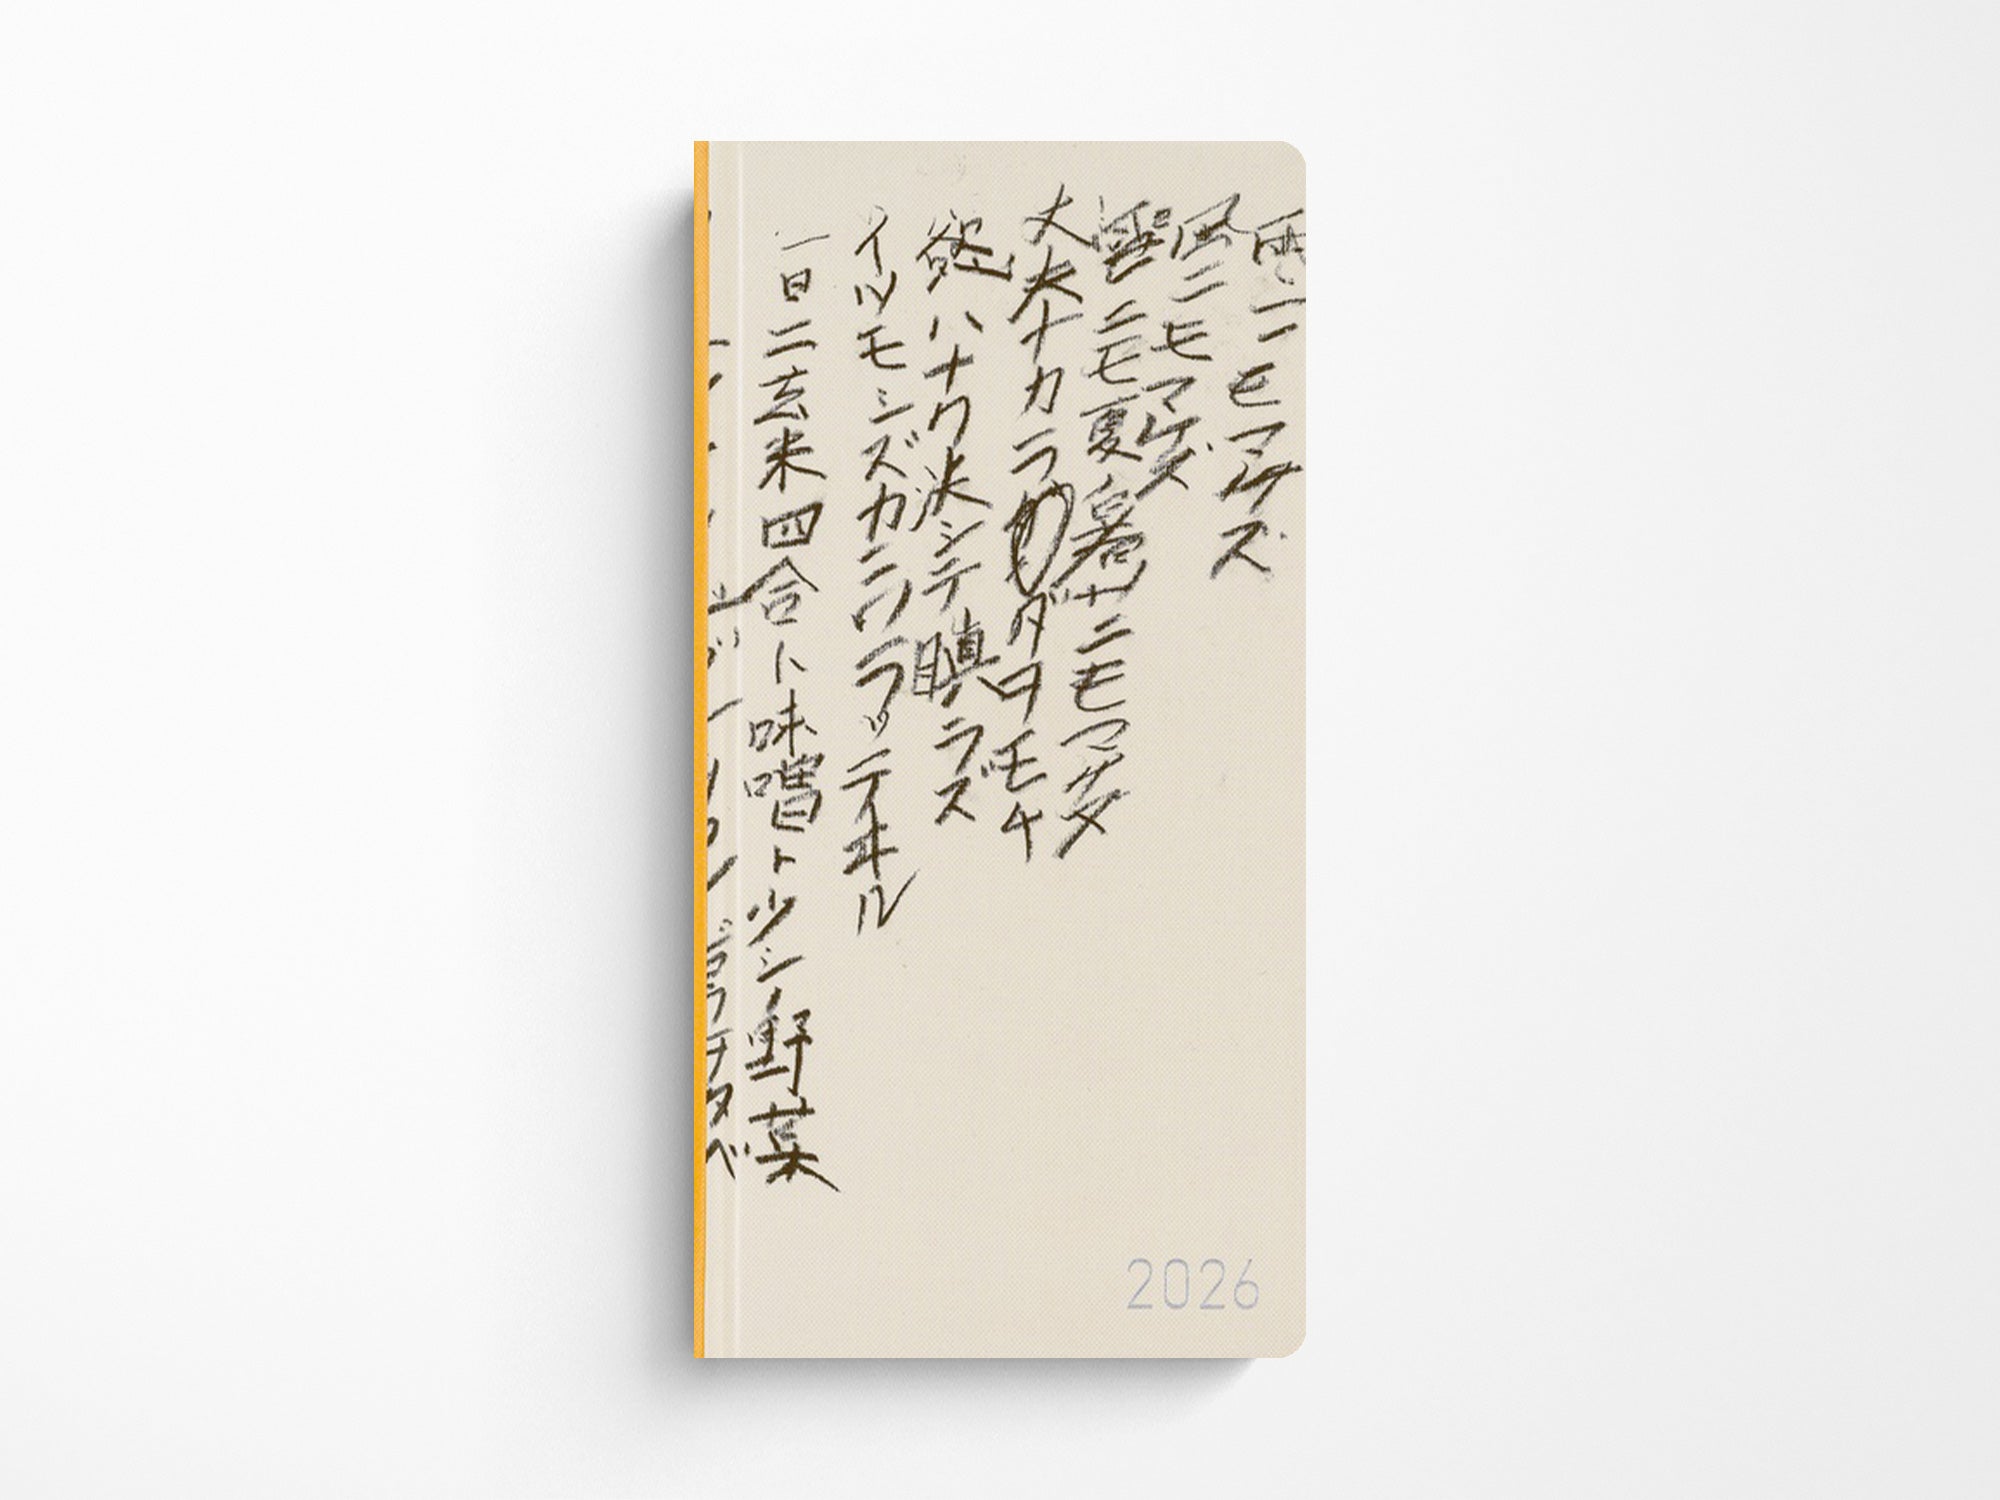 雨ニモマケズ
風ニモマケズ
雪ニモ夏ノ暑サニモマケヌ
丈夫ナカラダヲモチ
慾ハナク決シテ瞋ラズ
イツモシズカニワラッテヰル
一日ニ玄米四合ト味噌ト少シノ野菜
タベ
2026